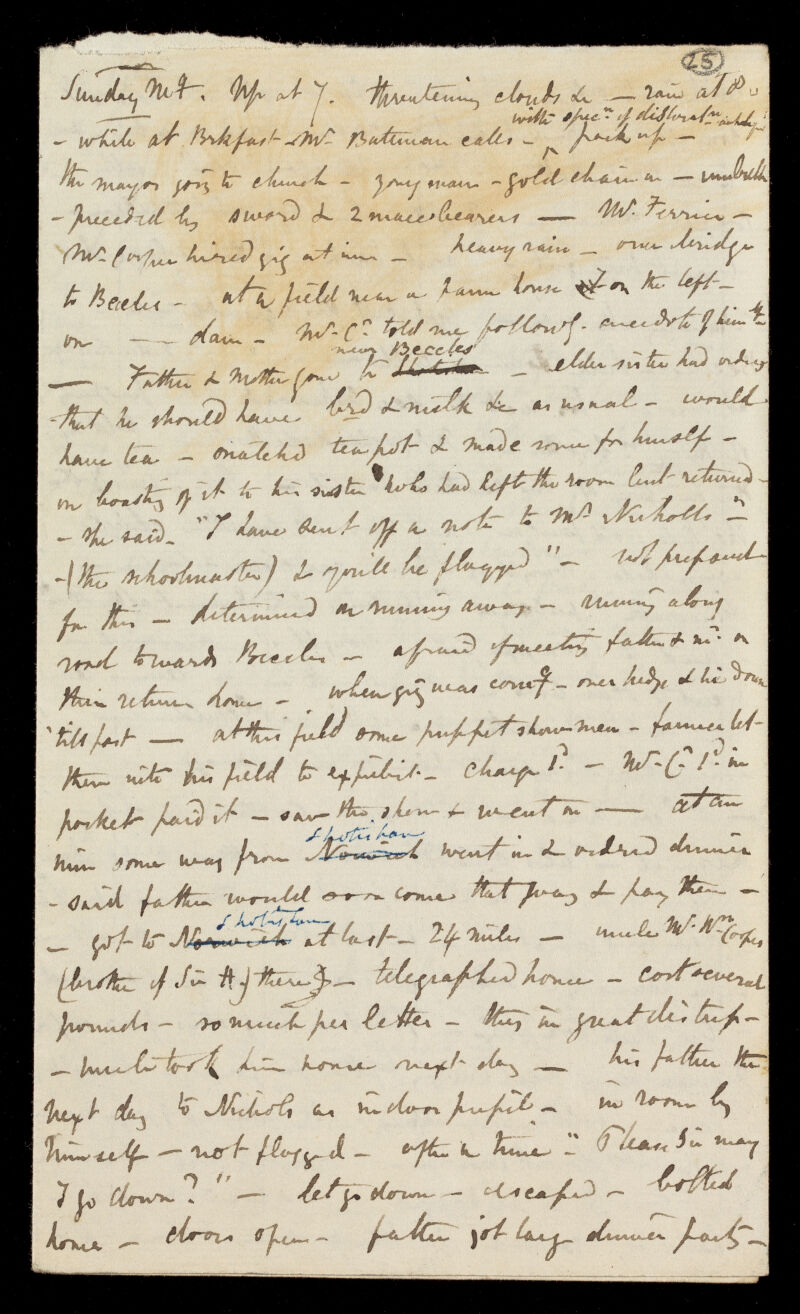 25
Sunday Mg. Up at 7. threatening clouds &c — rain at 8
with specn of
- while at Brkfast - Mr Bateman calls - pack up -
the mayor going to church - young man - gold chain on — umbrella
- preceded by sword & 2 mace bearers — Mr. Ferrier -
Mr Cooper hired gig at inn - heavy rain - over bridge
to Beccles - at a field near a farm house on the left -
on — dam - Mr. Cr. told me followg. anecdote of him
near Beccles
— Father & Mother gone to - elder sister had orders
that he should have brd & milk &c as usual - would
have tea - snatchd tea pot & made some for himself -
on boasting of it to his sister who had left the room but returned -
- she said - "I have sent off a note to Mr Nicholls" -
- (the schoolmaster) & you'll be flogged" - not prepared
for this - determined on running away - running along
road towards Beccles - afraid of meeting father & mr. on
their return home - when gig was comg - over hedge & lie down
till past — at this field some puppet showmen - farmer let
them into his field to exhibit - charge 1d. - Mr. Cr. 1d. in
pocket paid it - saw the show & went on — at an
Shotisham
inn some way from Norwich went in & ordered dinner
- said father would soon come that way & pay them -
Shotisham
- got to Norwich at last - 24 miles - uncle Mr. Wm Cooper
(brother of Sir A.) there - telegraphed home - cost several
pounds - so much per letter - they in great distress -
- uncle took him home next day — his father the
next day to Nichols as indoor pupil - in room by
himself - not flogged - after a time "Please Sir may
I go down?" - let go down - escaped - bolted
home - doors open - father got large dinner party -